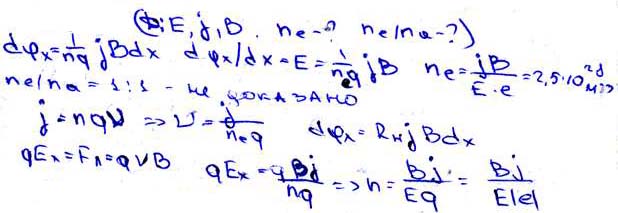 (D: E, j, B. ne-? ne/na-?)
dφx = 1/nq jBdx dφx/dx = E = 1/nq jB ne = jB/E·e = 2,5·10²⁸ м⁻³
ne/na = 1:1 - не доказано
j = nqV => V = j/neq dφx = RнjBdx
qEx = Fл = qVB qEx = qBj/nq => n = Bj/Eq = Bj/E|e|